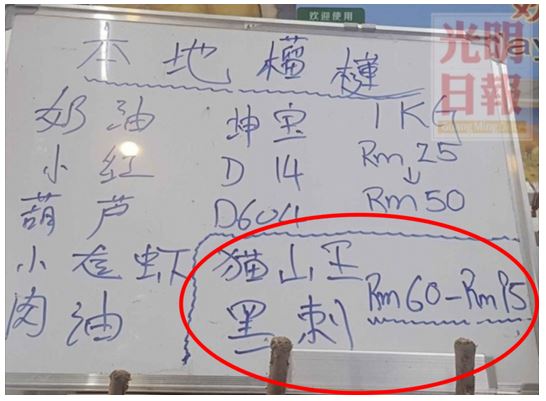 欢迎使用
光明日報
本地榴梿
奶油 坤宝 1KG
小红 D14 Rm 25
↓
葫芦 D604 Rm 50
小龙虾 猫山王 Rm60-Rm95
肉油 黑刺